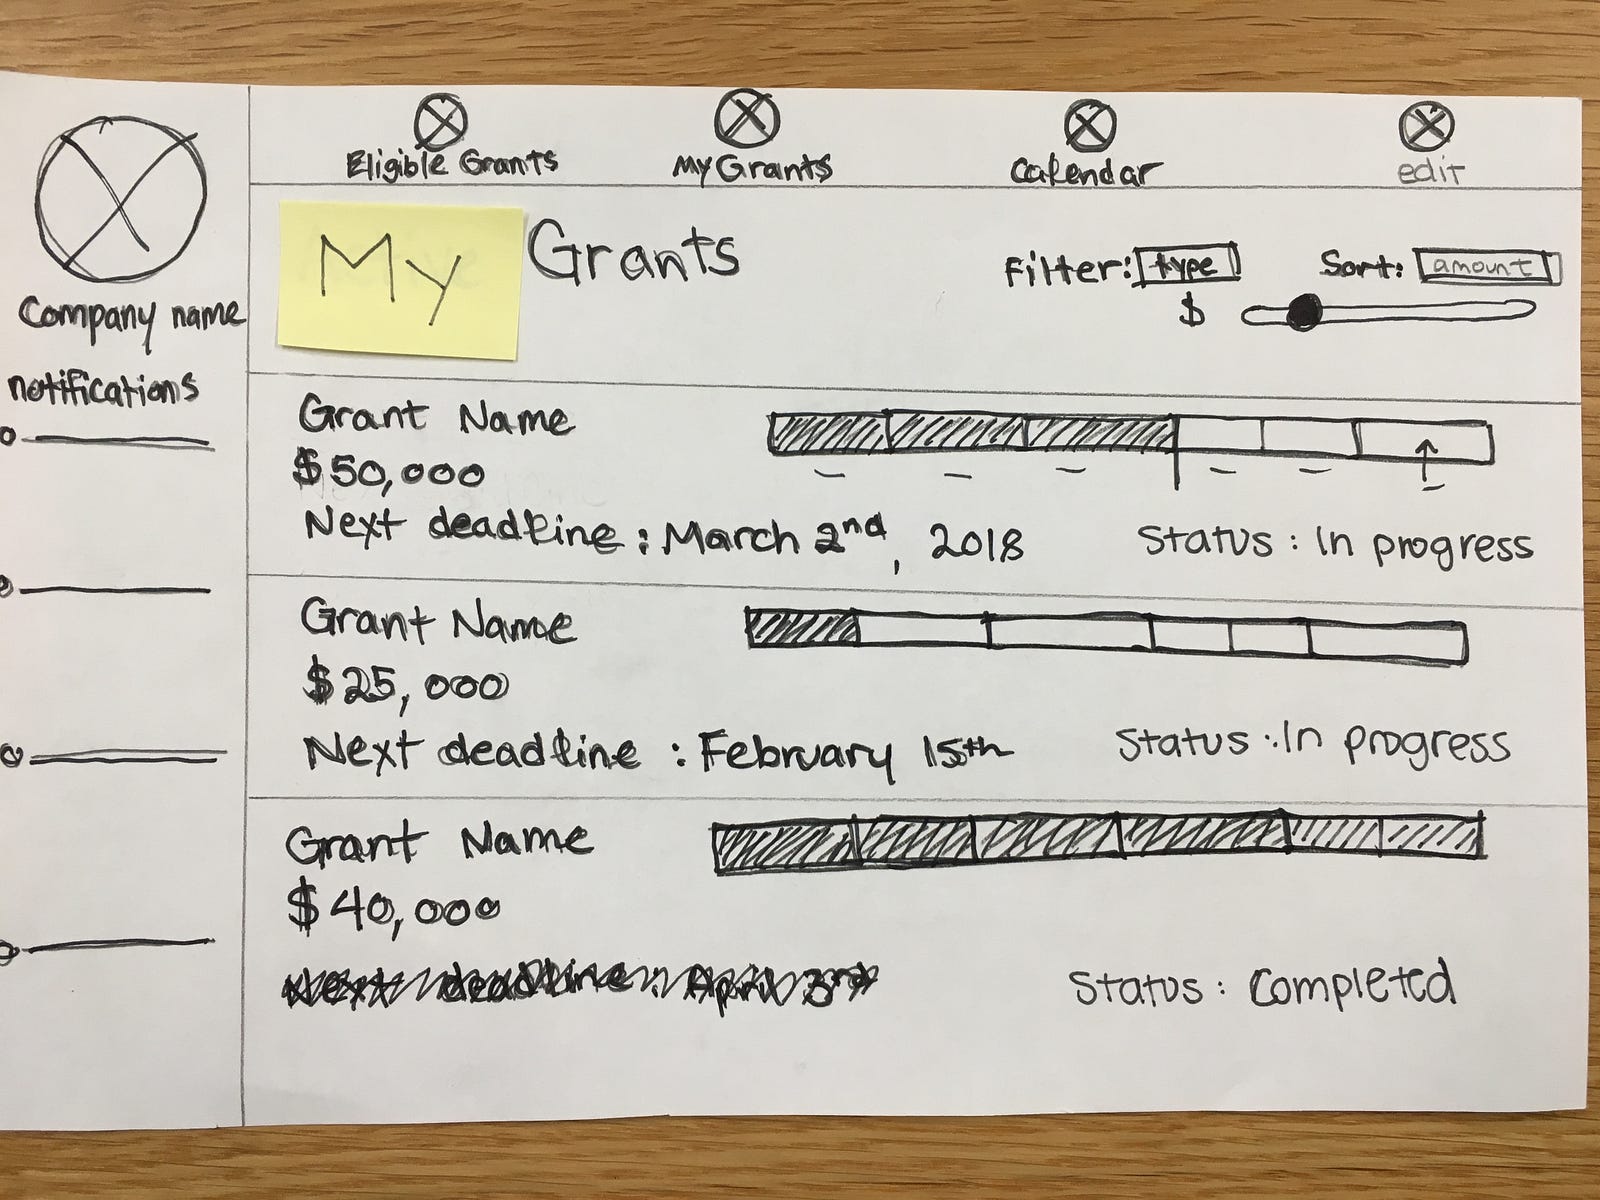 Eligible Grants
My Grants
Calendar
edit
Company name
notifications
My Grants
Filter: type
Sort: amount
$
Grant Name
$50,000
Next deadline : March 2nd, 2018
Status : In progress
Grant Name
$25,000
Next deadline : February 15th
Status : In progress
Grant Name
$40,000
Next deadline : April 3rd
Status : Completed